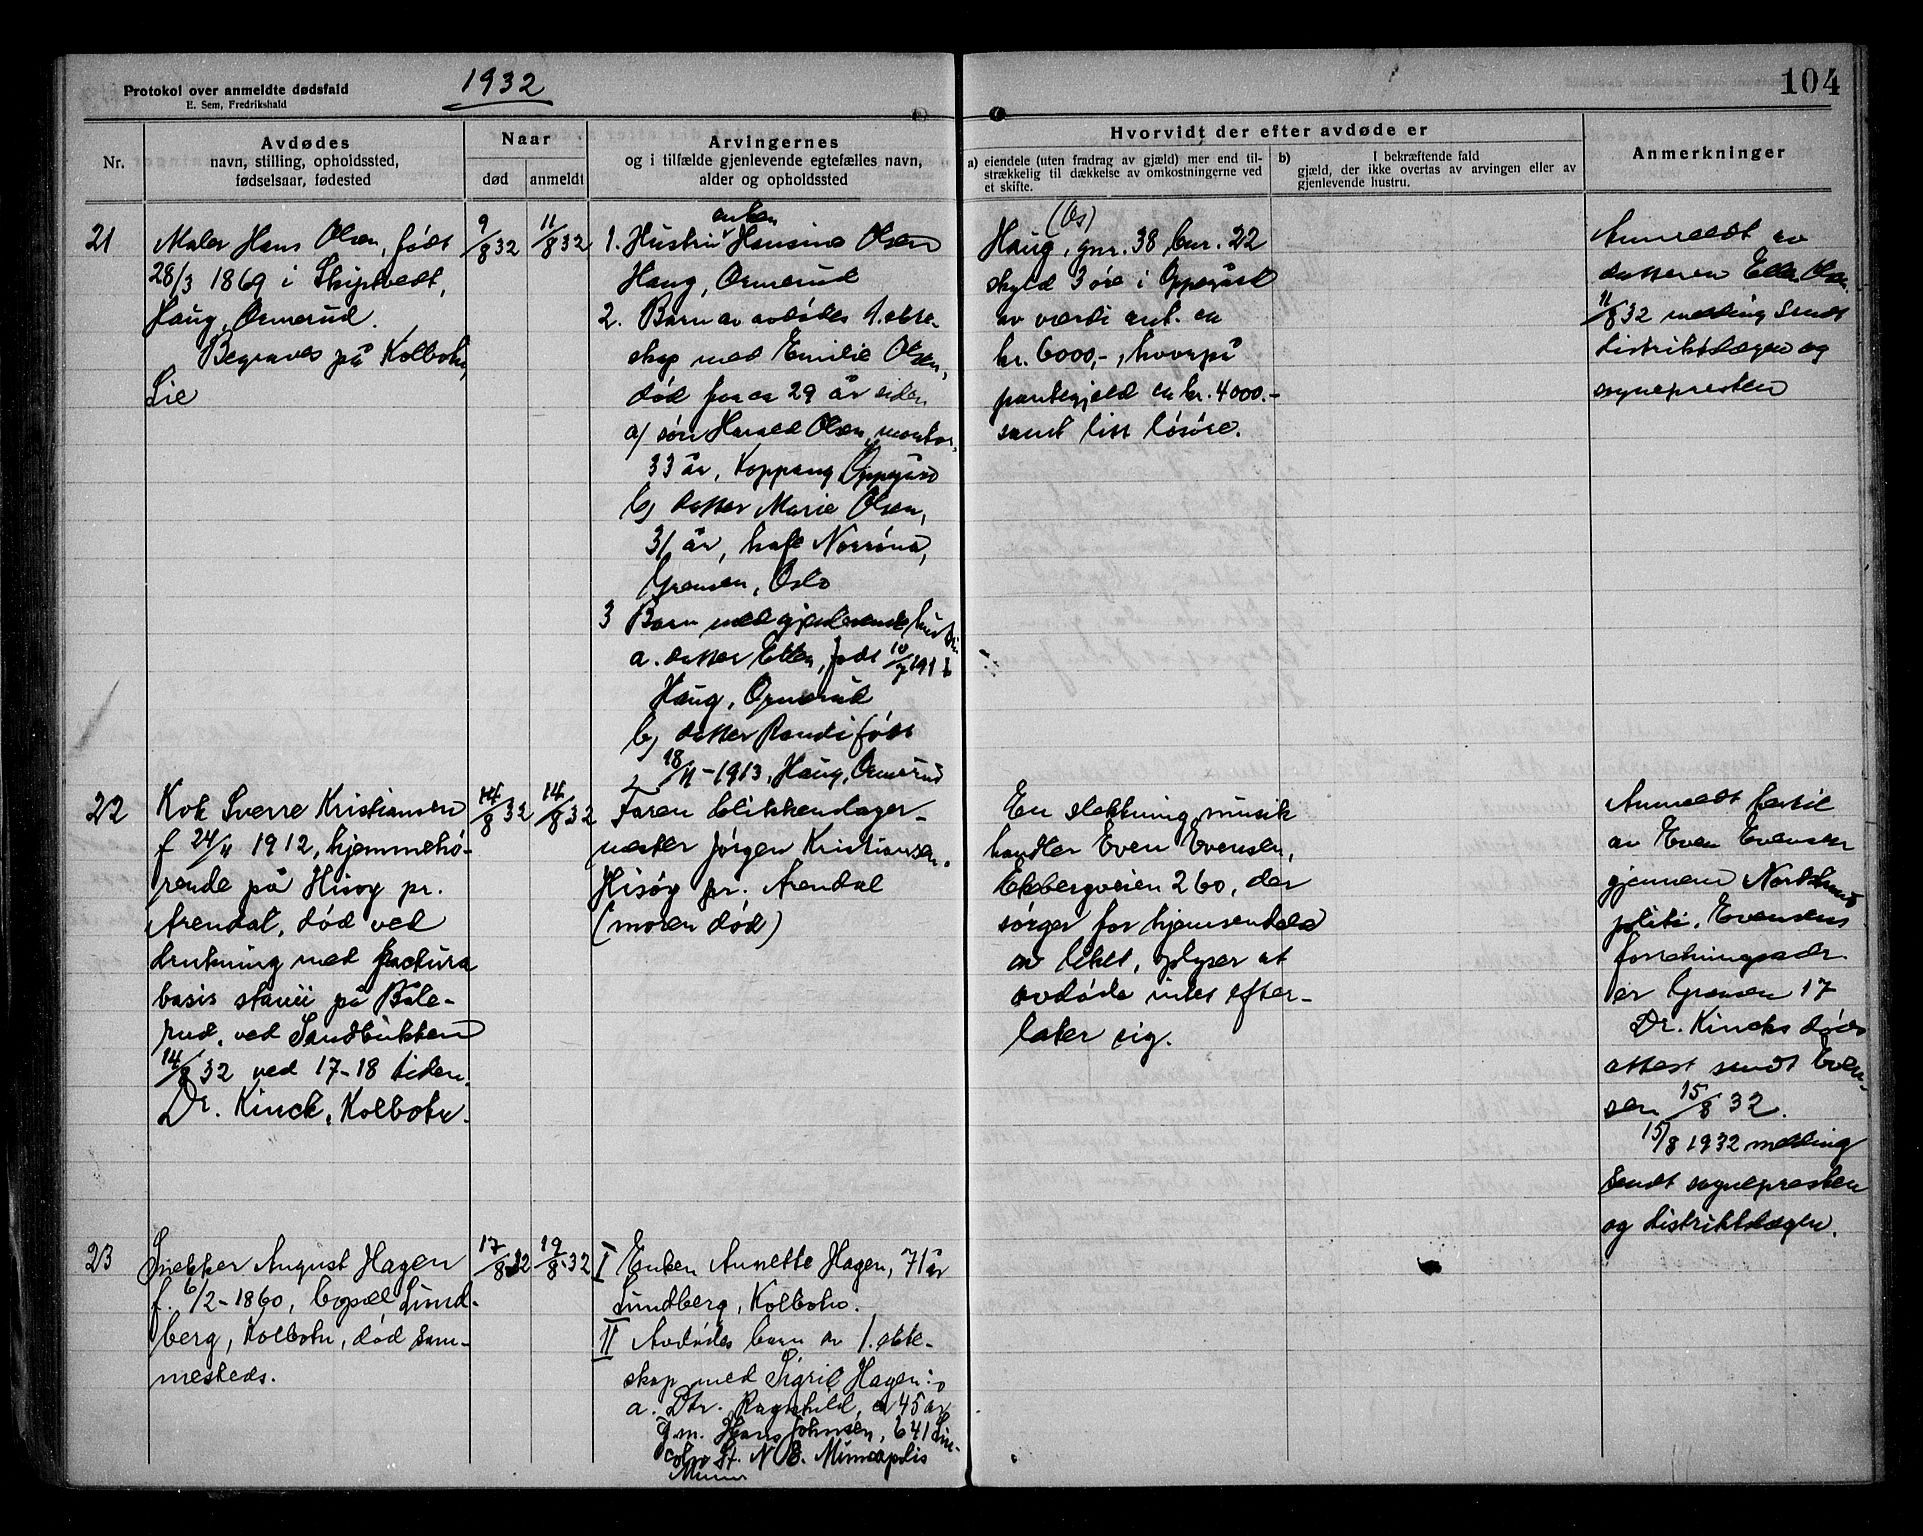 Protokol over anmeldte dødsfald
E. Sem, Fredrikshald
1932
104
Nr.
Avdødes
navn, stilling, opholdssted,
fødselsaar, fødested
Naar
død
anmeldt
Arvingernes
og i tilfælde gjenlevende egtefælles navn,
alder og opholdssted
Hvorvidt der efter avdøde er
a) eiendele (uten fradrag av gjæld) mer end til-
strækkelig til dækkelse av omkostningerne ved
et skifte.
b) I bekræftende fald
gjæld, der ikke overtas av arvingen eller av
gjenlevende hustru.
Anmerkninger
21
Maler Hans Olsen, født
28/3 1869 i Skiptvedt,
Haug, Ormerud.
Begraves på Kolbotn,
Lie
9/8 32
11/8 32
enken
1. Hustru Hansine Olsen
Haug, Ormerud
2. Barn av avdødes 1. ekte-
skap med Emilie Olsen,
død for ca 29 år siden
a) søn Harald Olsen, montør,
33 år, Koppang Oppegård
b) datter Marie Olsen,
31 år, kafe Norrøna,
Grensen, Oslo
3 Barn med gjenlevende hustru
a. datter Ellen, født 10/7 1911
Haug, Ormerud
b) datter Randi født
18/11-1913, Haug, Ormerud
(Os)
Haug, gnr. 38 bnr. 22
skyld 3 øre i Oppegård
av værdi ant. ca
kr. 6000,-, hvorpå
pantegjeld ca kr. 4000.-
samt litt løsøre.
Anmeldt av
datteren Ellen Olsen.
11/8 32 melding sendt
distriktslægen og
sognepresten
22
Kok Sverre Kristiansen
f 24/11 1912, hjemmehø-
rende på Hisøy pr.
Arendal, død ved
drukning med fractura
basis cranii på Båle-
rud, ved Sandbukten
14/8 32 ved 17-18 tiden.
Dr. Kinck, Kolbotn.
14/8 32
14/8 32
Faren blikkenslager-
mester Jørgen Kristiansen,
Hisøy pr. Arendal
(moren død)
En slektning, musik
handler Even Evensen,
Ekebergveien 260, der
sørger for hjemsendelse
av liket, oplyser at
avdøde intet efter-
later sig.
Anmeldt hertil
av Even Evensen
gjennem Nordstrand
politi. Evensens
forretningsadr.
er Grensen 17
Dr. Kincks døds
attest sendt Even-
sen 15/8 32.
15/8 1932 melding
sendt sognepresten
og distriktslægen.
23
Snekker August Hagen
f. 6/2-1860, bopæl Lund-
berg, Kolbotn, død sam-
mesteds.
17/8 32
19/8 32
I Enken Annette Hagen, 71 år
Lundberg, Kolbotn.
II Avdødes barn av 1. ekte-
skap med Sigrid Hagen:
a. Dtr. Ragnhild, ca 45 år
g.m. Hans Johnsen, 641 Lin-
coln St. N E. Minneapolis
Minn